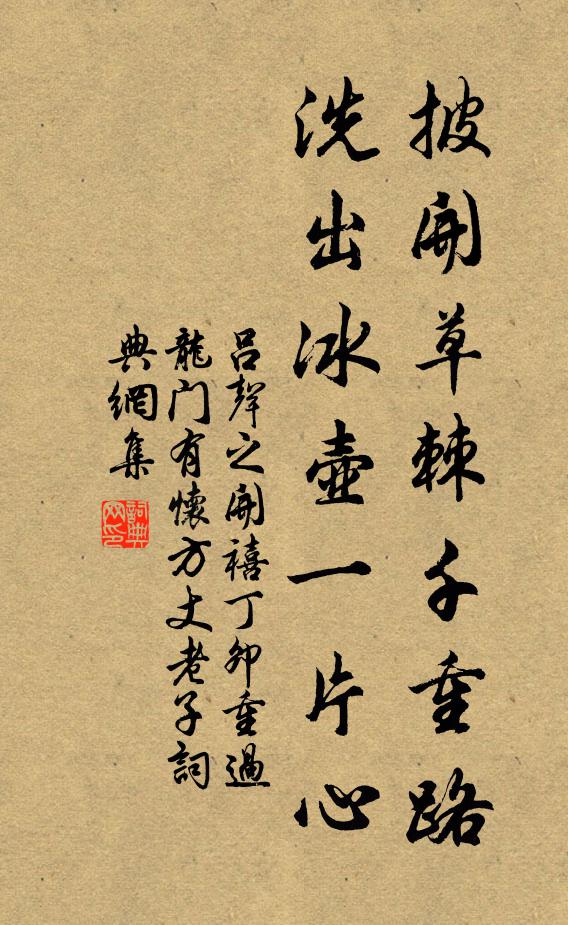 披開草棘千重路
洗出冰壺一片心
呂聲之開禧丁卯重過
龍门有懷方丈老子詞
典網集
詞典
网印